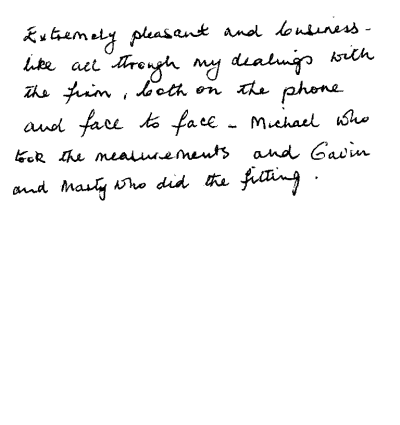 Extremely pleasant and business-
like all through my dealings with
the firm, both on the phone
and face to face - Michael who
took the measurements and Gavin
and Marty who did the fitting.